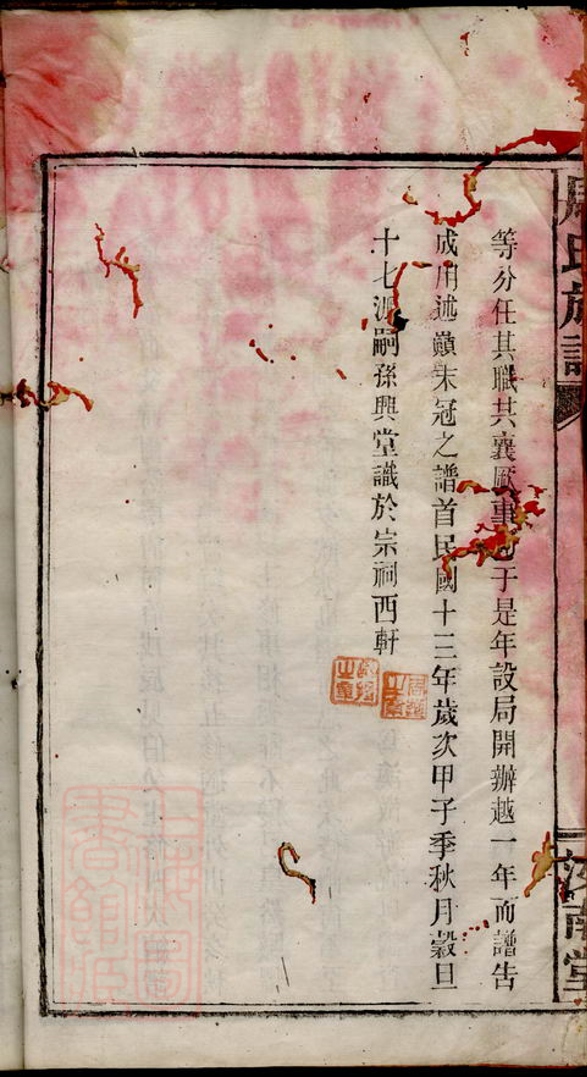 周氏族譜
汝南堂
等分任其職共襄厥事于是年設局開辦越一年而譜告
成用述巔末冠之譜首民國十三年歲次甲子季秋月穀旦
十七派嗣孫興堂識於宗祠西軒